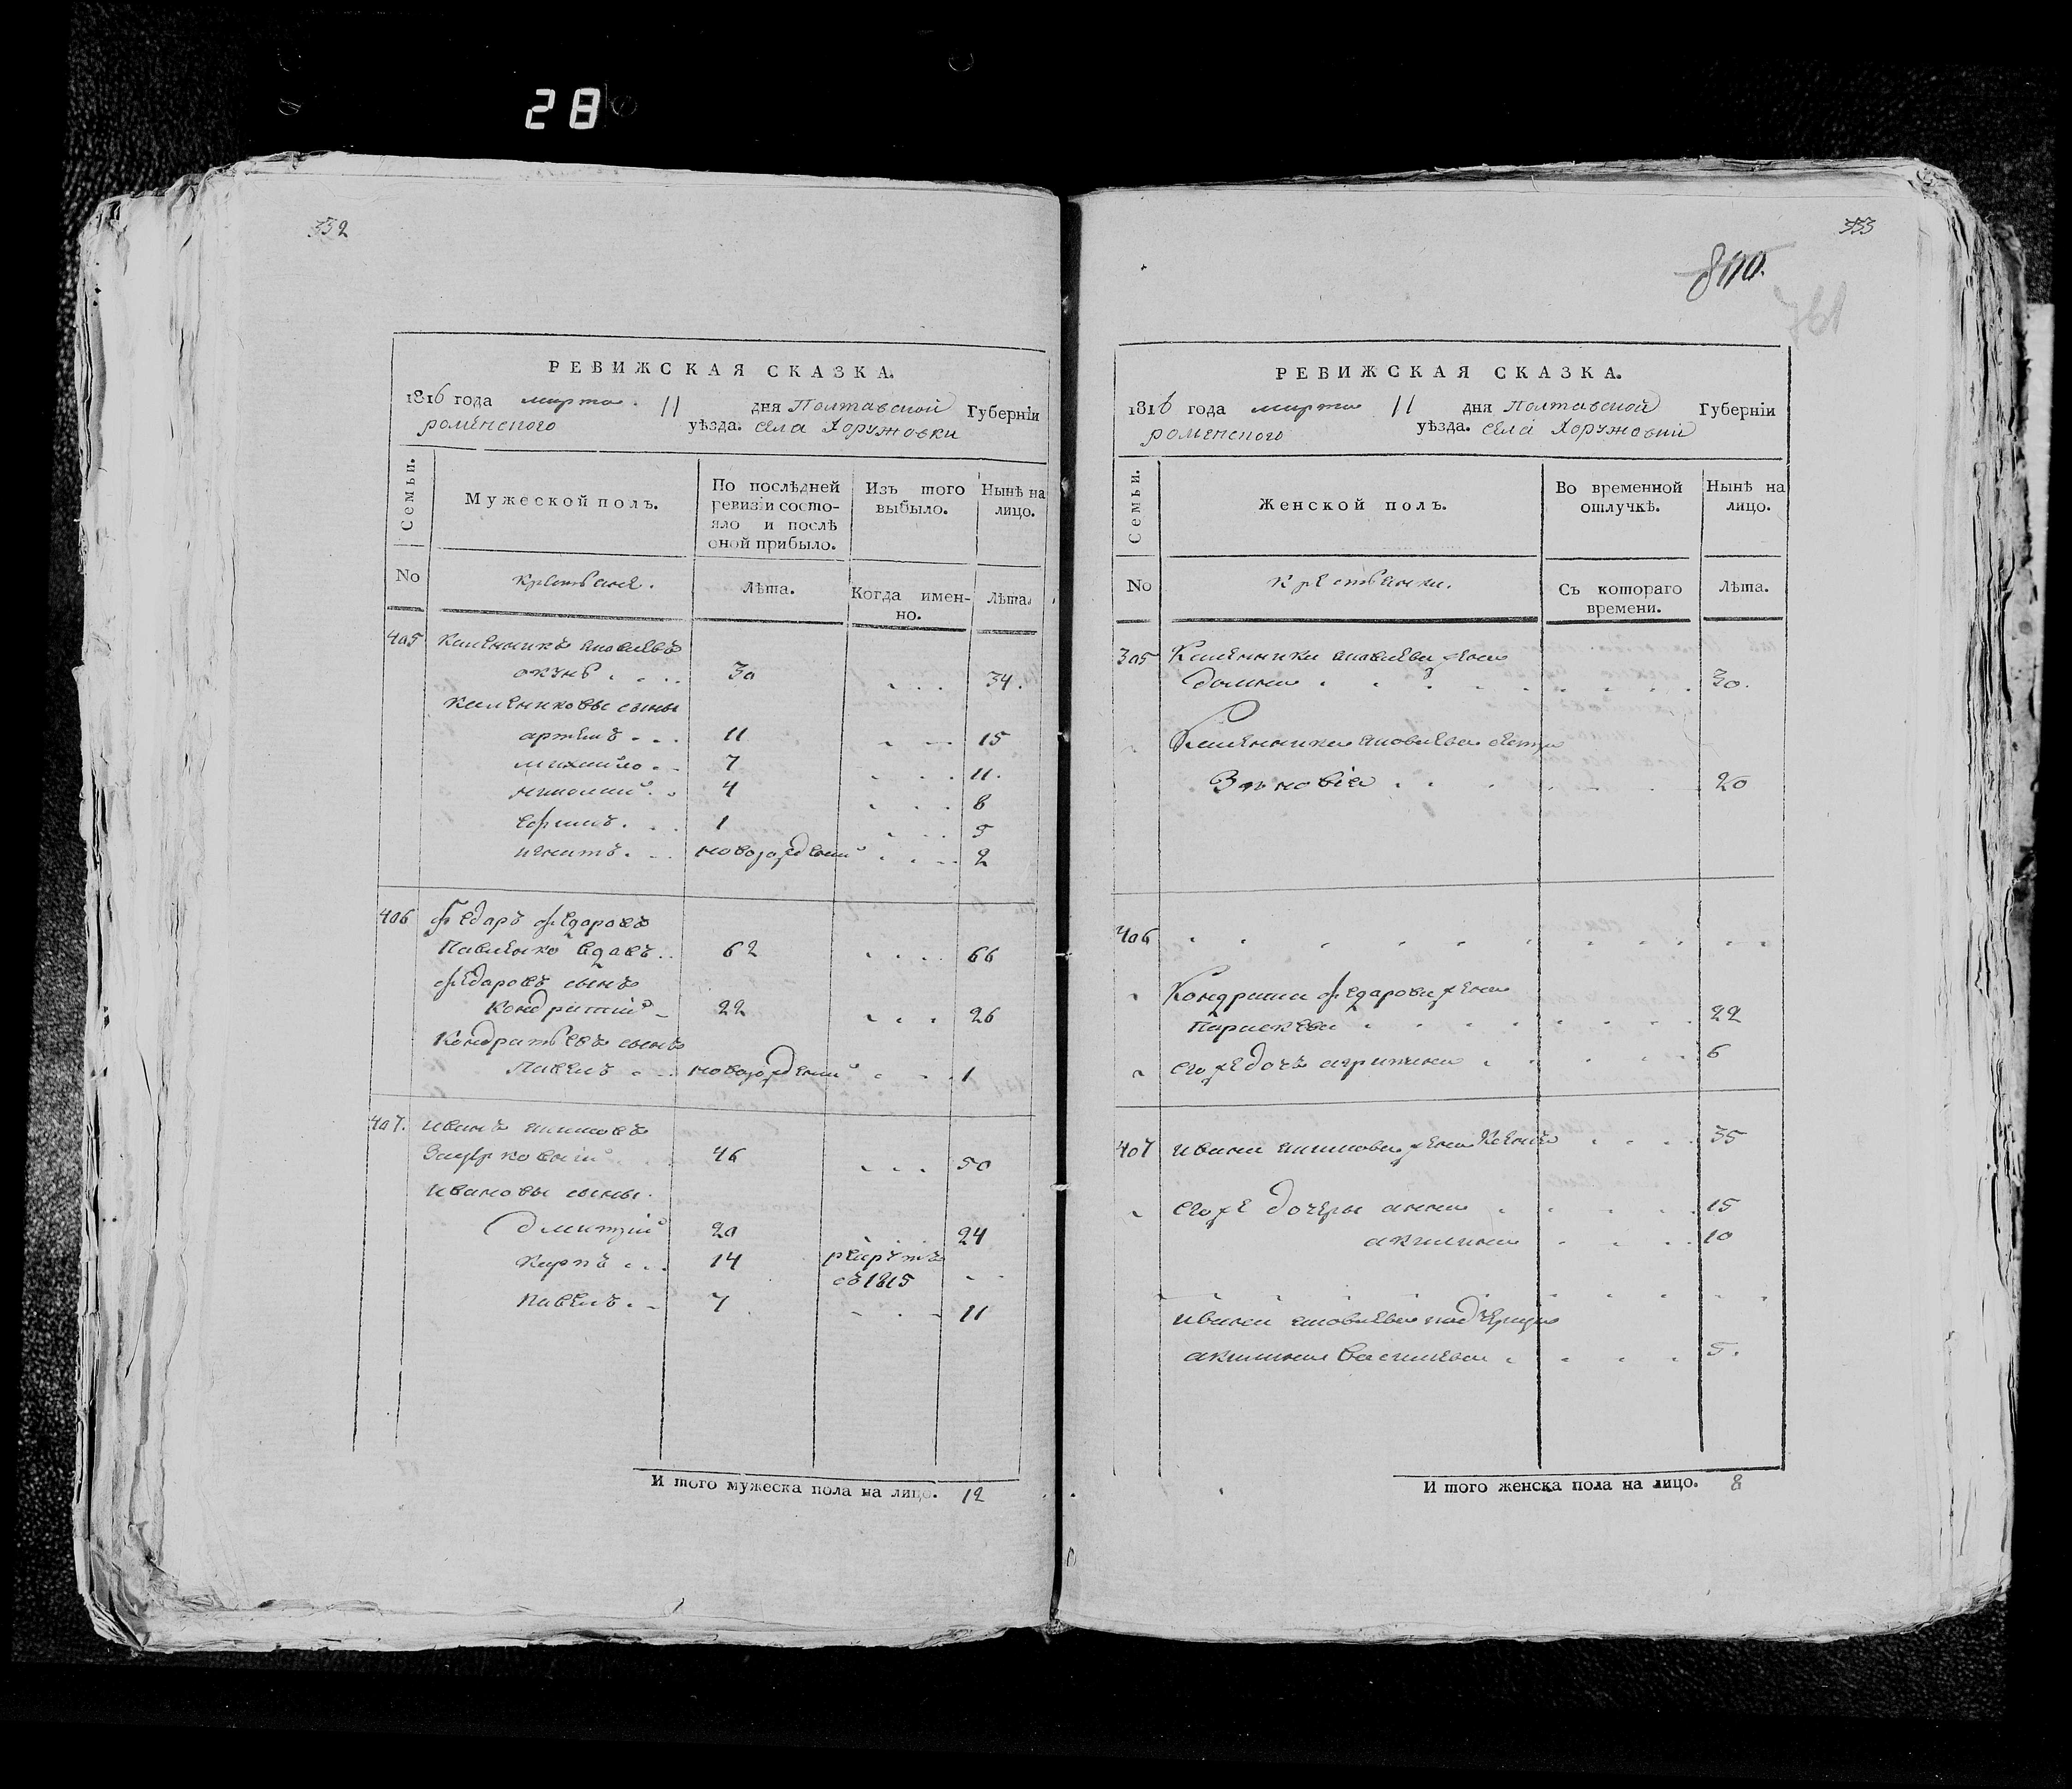 28
352
РЕВИЖСКАЯ СКАЗКА.
1816 года марта 11 дня Полтавской Губерніи
роменского уѣзда. села Хоружовки
Семьи.
Мужеской полъ.
По послѣдней ревизіи состояло и послѣ оной прибыло.
Изъ того выбыло.
Нынѣ на лицо.
No
крестьяне.
Лѣта.
Когда именно.
Лѣта.
405 Каленикъ яковлевъ
30 34.
Калениковы сыны
артемъ 11 15
михайло 7 11.
николай 4 8
ефимъ 1 5
игнатъ новорожденй 2
406 Федоръ федоровъ
Павленко вдовъ 62 66
федоровъ сынъ
Кондратій 22 26
Кондратьевъ сынъ
Павелъ новорожденй 1
407. иванъ
46 50
ивановы сыны.
Дмитрій 20 24
карпъ 14 рекрутъ
съ 1815
павелъ 7 11
И того мужеска пола на лицо. 12
353
810.
761
РЕВИЖСКАЯ СКАЗКА.
1816 года марта 11 дня Полтавской Губерніи
роменского уѣзда. села Хоружовки
Семьи.
Женской полъ.
Во временной отлучкѣ.
Нынѣ на лицо.
No
крестьянки.
Съ котораго времени.
Лѣта.
305 Каленика яковлева жена
домна 30.
Каленика яковлева
Зиновія 20
406
Кондрата федорова жена
Параскева 22
егоже дочь агрипина 6
407 ивана жена Ксенія 35
егоже дочеры анна 15
акилина 10
ивана яковлева падчерица
акилина васильева 5.
И того женска пола на лицо. 8